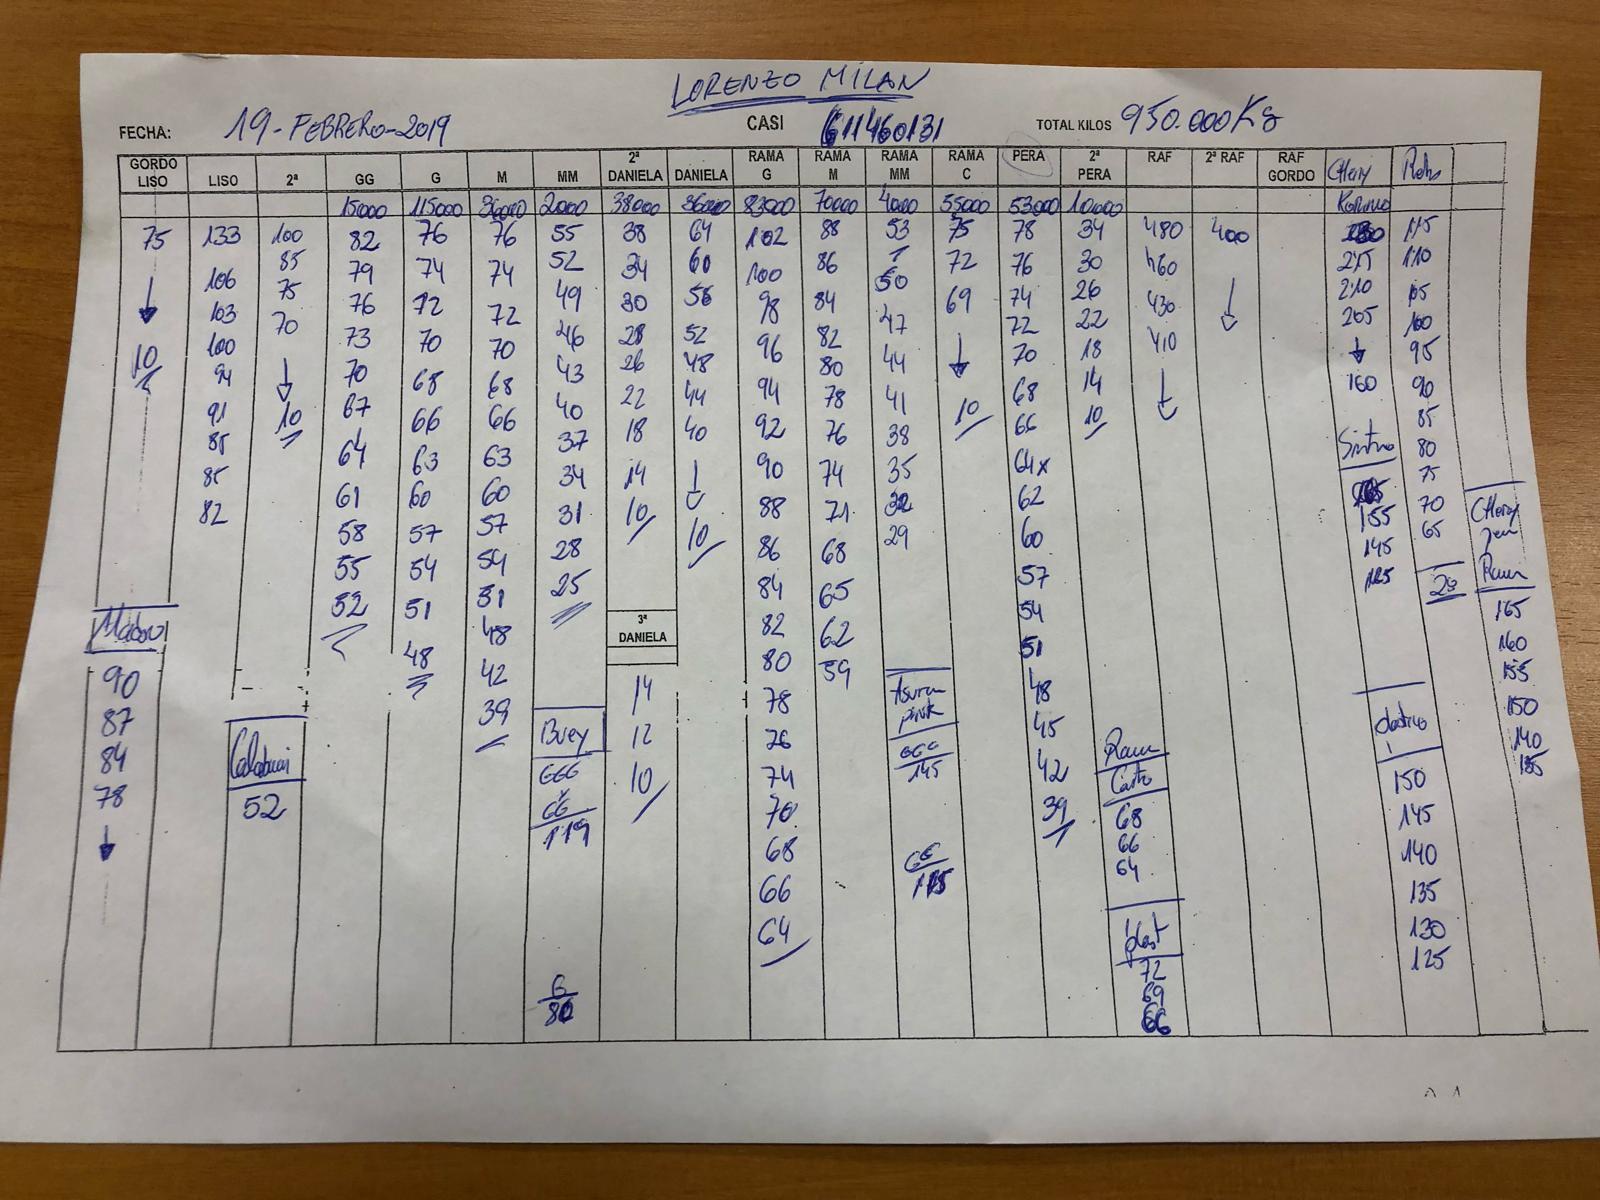 LORENZO MILAN
FECHA: 19-FEBRERO-2019 CASI 611460131 TOTAL KILOS 950.000Kg
GORDO LISO LISO 2ª GG G M MM 2ª DANIELA DANIELA RAMA G RAMA M RAMA MM RAMA C PERA 2ª PERA RAF 2ª RAF RAF GORDO CHery
15000 115000 36000 2000 38000 36000 83000 70000 4000 55000 53000 10000
75 133 100 82 76 76 55 38 64 102 88 53 75 78 34 480 400 115
106 85 79 74 74 52 34 60 100 86 50 72 76 30 460 215 110
↓ 103 75 76 72 72 49 30 56 98 84 47 69 74 26 430 ↓ 210 105
10 100 70 73 70 70 46 28 52 96 82 44 ↓ 72 22 410 205 100
94 ↓ 70 68 68 43 26 48 94 80 41 10 70 18 ↓ ↓ 95
91 10 67 66 66 40 22 44 92 78 38 68 14 160 90
85 64 63 63 37 18 40 90 76 35 66 10 85
85 61 60 60 34 14 ↓ 88 74 32 64x 80
82 58 57 57 31 10 10 86 71 29 62 155 75
55 54 54 28 84 68 60 145 70
52 51 51 25 82 65 57 125 65
48 48 80 62 54 28
42 78 59 51
39 76 48
74 45
70 42
68 39
66
64
3ª DANIELA
14
12
10
90
87
84
78
↓
52
Buey
GGG
GG
119
G
80
pink
GGG
145
GG
115
68
66
64
72
69
66
150
145
140
135
130
125
CHery
165
160
155
150
140
135